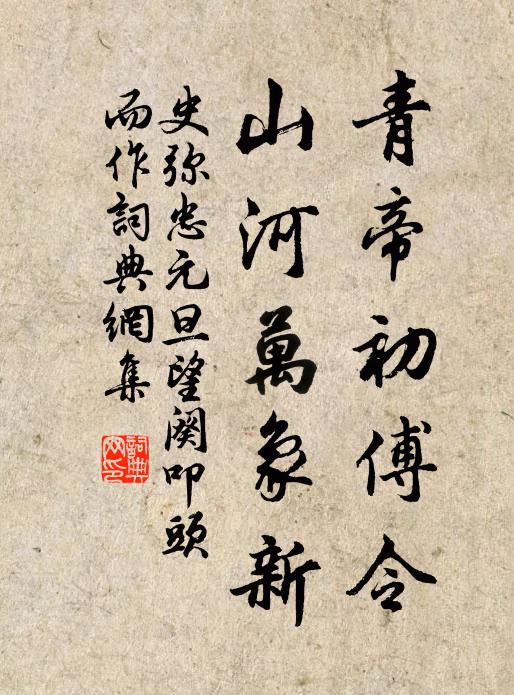 青帝初傅令
山河萬象新
史弥忠元旦望闕叩頭
而作詞典網集
詞典网印